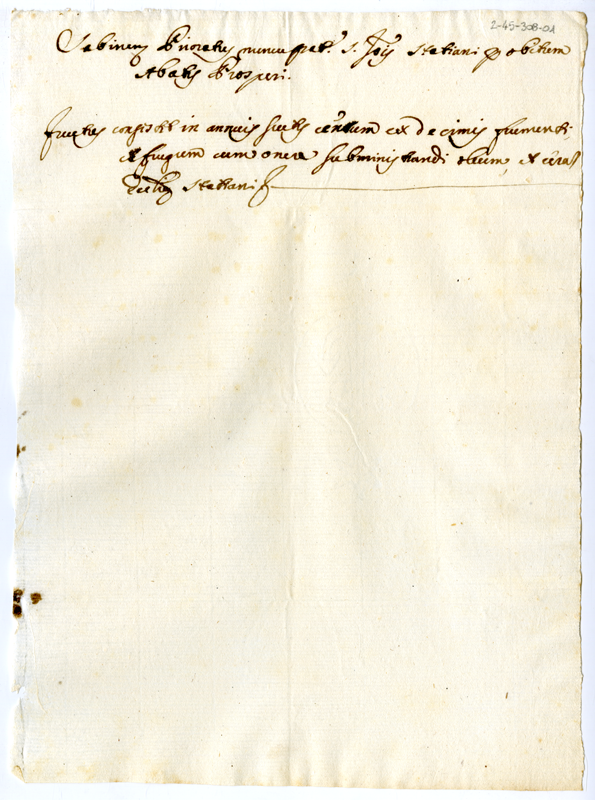 2-45-308-01
Sabinens Prioratus nuncupat.s S. Jois Stationi p obitum
Abatis Prosperi.
Fructus consistit in annuis scutis centum ex decimis frumenti,
et frugum cum onere subministrandi oleum, et cera
Ecclia Stationi